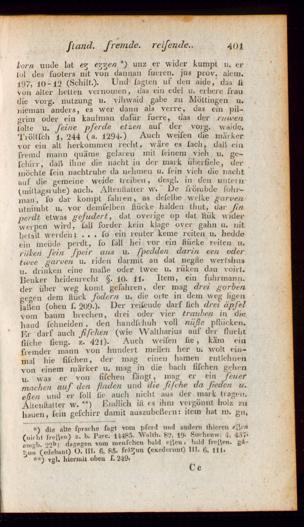 stand. fremde. reisende. 401
korn unde lat ez ezzen *) unz er wider kumpt u. er
tol des fuoters nit von dannan fueren. jus prov. alem.
197, 10-12 (Schilt.). Und sagten uf den aide, das si
von alter hetten vernomen, das ein edel u. erbere frau
die vorg. nutzung u. vihwaid gabe zu Möttingen u.
nieman anders, es wer dann als verre, das ein pil-
grim oder ein kaufman dafür fuere, das der ruwen
solte u. seine pferde etzen auf der vorg. waide.
Tröltsch 1, 244 (a. 1294.) Auch weisen die märker
vor ein alt herkommen recht, wäre es sach, daß ein
fremd mann quäme gefaren mit seinem vieh u. ge-
schirr, daß ihne die nacht in der mark überfiele, der
möchte sein nachtrube da nehmen u. sein vieh die nacht
auf die gemeine weide treiben, desgl. in den untern
(mittagsruhe) auch. Altenstatter w. De frömbde fohr-
man, so dar kompt fahren, as deselbe welke garven
utnimbt u. vor demselben stücke halden thut, dar sin
perdt etwas gefudert, dat overige op dat stük wider
werpen wird, sall forder kein klage over gahn u. nit
betalt werden: . . . so ein reuter keme reiten u. hedde
ein meüde perdt, so fall hei vor ein stücke reiten u.
rüken sein speir aus u. spedden darin een oder
twee garven u. riden darmit an dat negste werfshus
u. drinken eine maße oder twee u. rüken dan voirt.
Benker heidenrecht §. 10. 11. Item, ein fuhrmann,
der über weg komt gefahren, der mag drei gorben
gegen dem stück födern u. die orte in dem weg ligen
laßen (oben s. 209.). Der reisende darf sich drei äpfel
vom baum brechen, drei oder vier trauben in die
hand schneiden, den handschuh voll nüße pflücken.
Er darf auch fischen (wie Waltharius auf der flucht
fische fieng. z. 421). Auch weisen sie, käm ein
fremder mann von hundert meilen her u. wolt ein-
mal hie fischen, der mag einen hamen entlehnen
von einem märker u. mag in die bach fischen gehen
u. was er von fischen fängt, mag er ein feuer
machen auf den staden und die fische da sieden u.
eßen und er soll sie auch nicht aus der mark tragen.
Altenstatter w. **) Endlich ist es ihm vergönnt holz zu
hauen, sein geschirr damit auszubeßern: item hat m. gn,
*) die alte sprache sagt vom pferd und andern thieren eßen
(nicht freßen) z. b. Parc. 14485. Walth. 82, 19. Suchenw. 4, 437.
amgb. 22b; dagegen vom menschen bald eßen, bald freßen. gâ-
zun (edebant) O. III. 6, 85. frâzun (exederunt) III. 6, 111.
**) vgl. hiermit oben s. 249.
C c